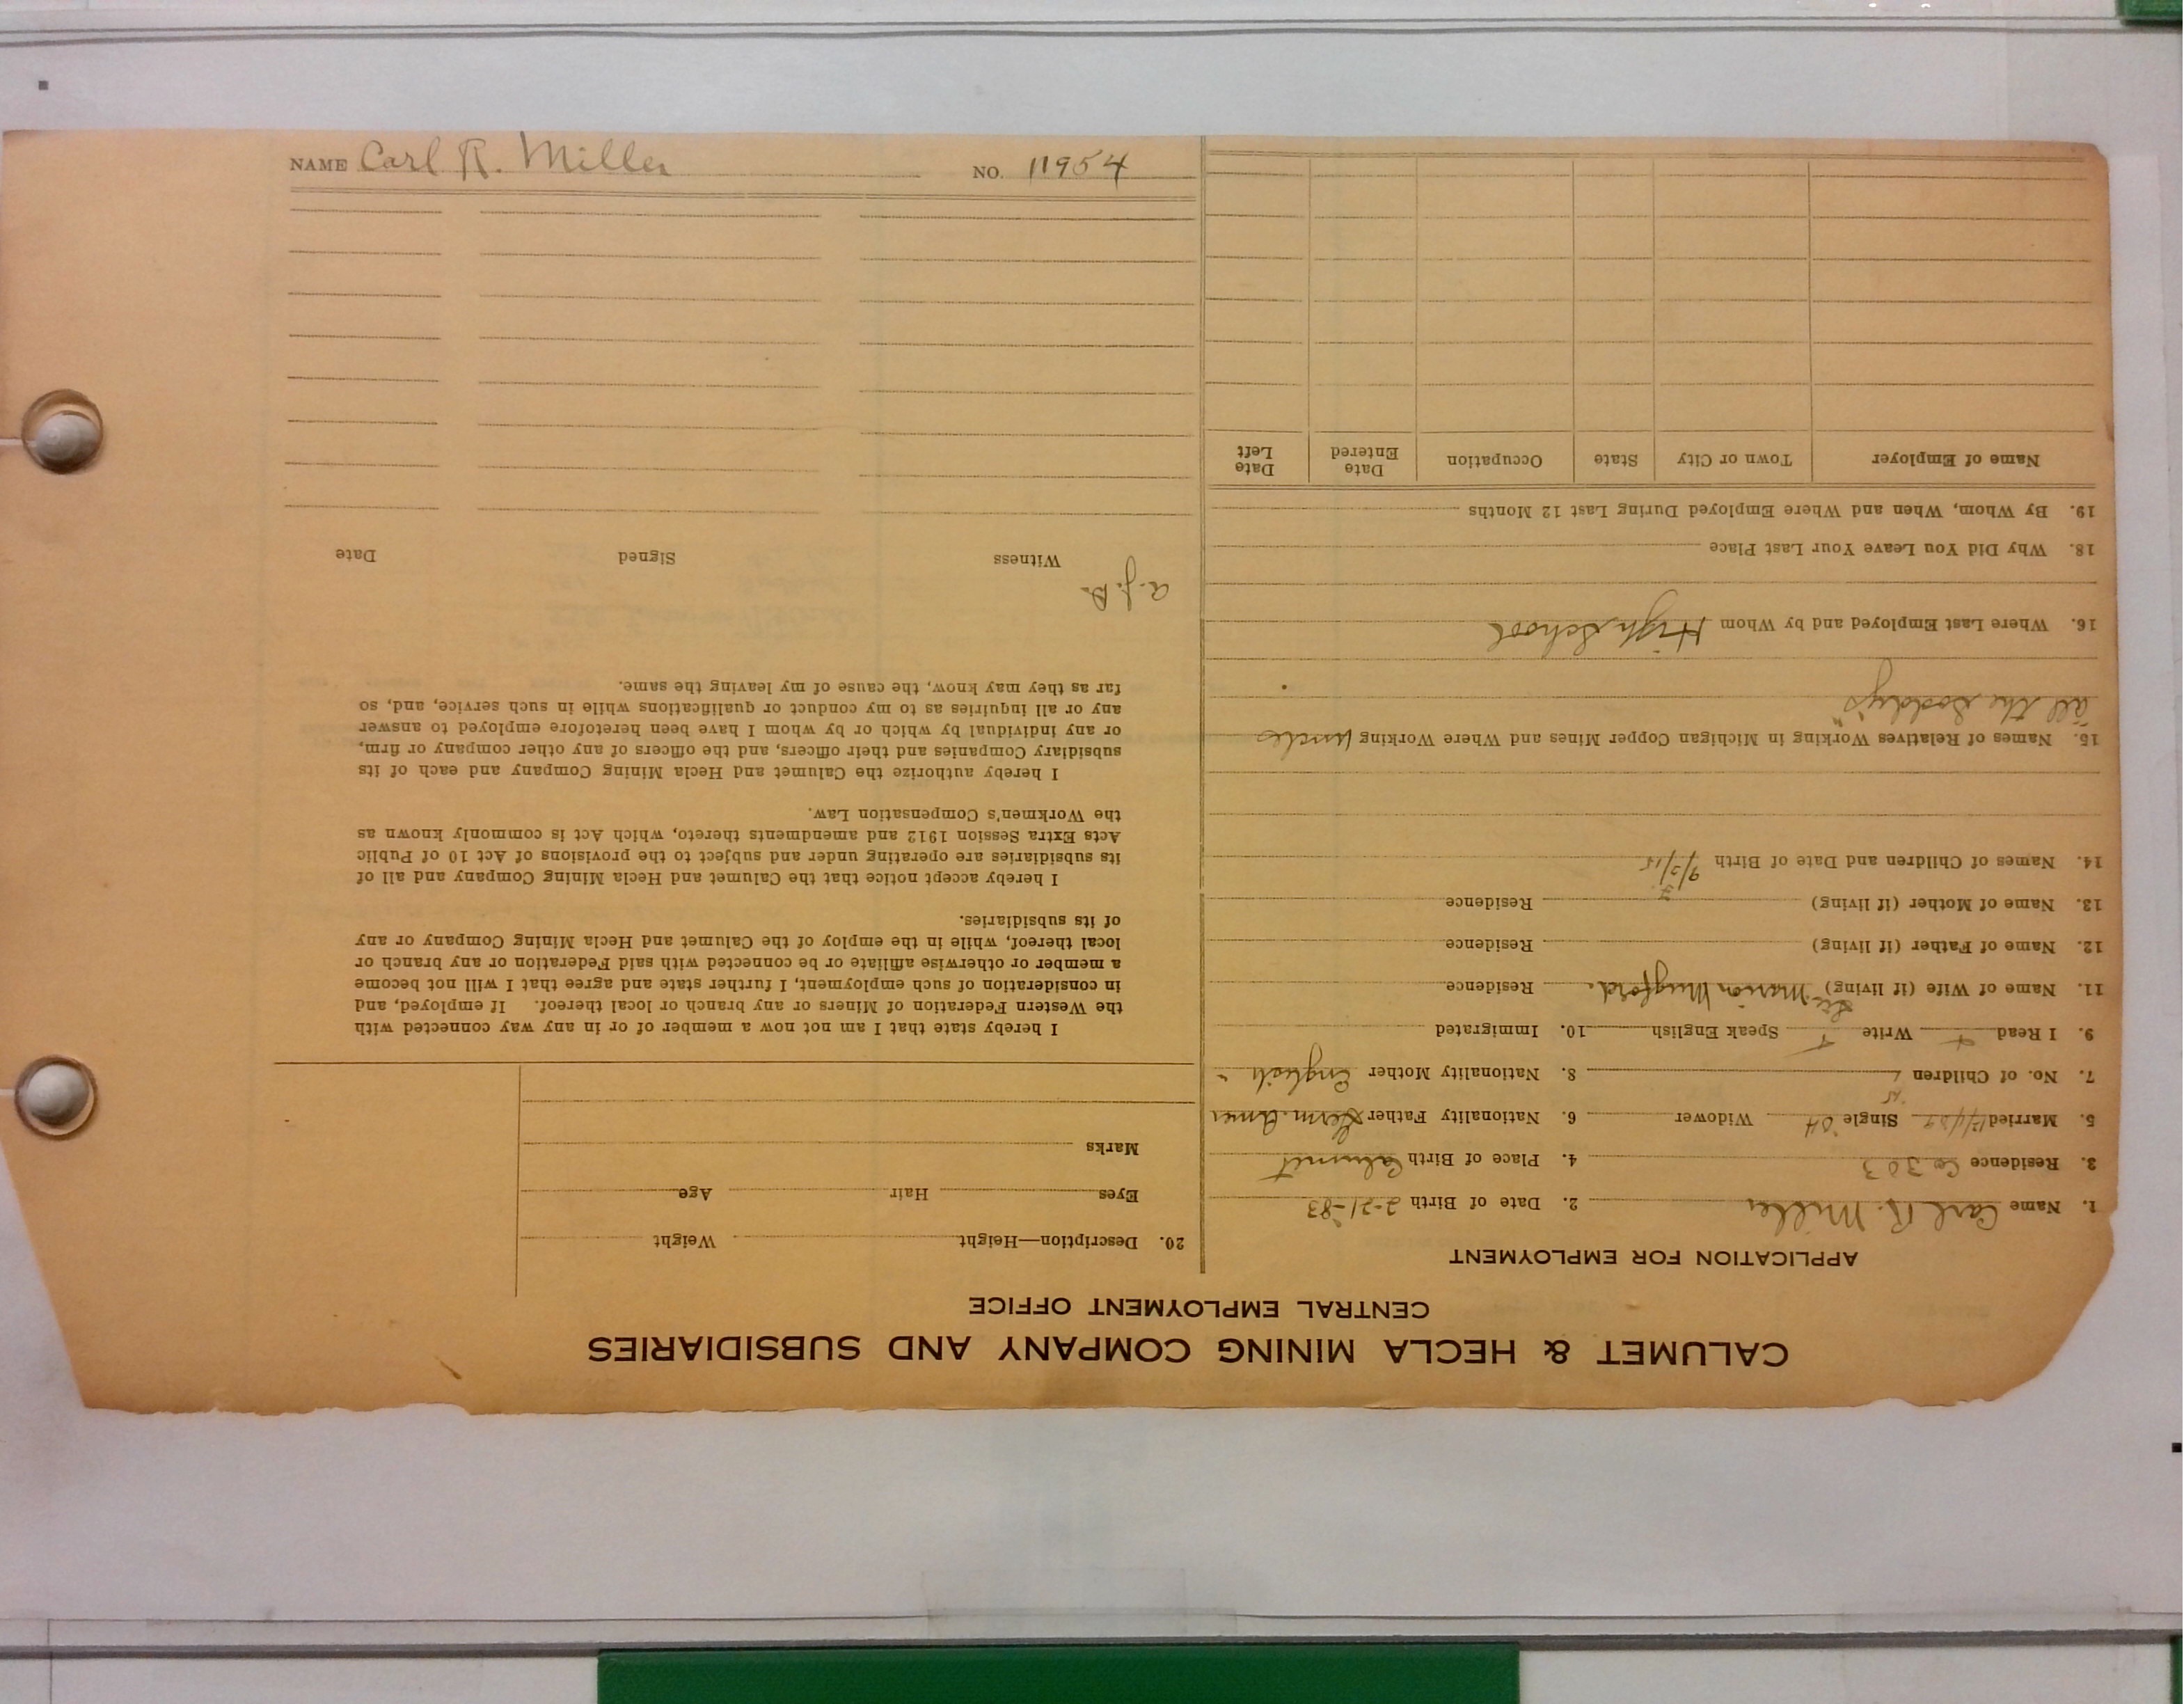 CALUMET & HECLA MINING COMPANY AND SUBSIDIARIES
CENTRAL EMPLOYMENT OFFICE
APPLICATION FOR EMPLOYMENT
1. Name Carl R. Miller 2. Date of Birth 2-21-83
3. Residence Co 303 4. Place of Birth Calumet
5. Married Single Widower 6. Nationality Father Germ. Amer
7. No. of Children 8. Nationality Mother English "
9. I Read Write Speak English 10. Immigrated
11. Name of Wife (if living) Marion Mugford. Residence
12. Name of Father (if living) Residence
13. Name of Mother (if living) Residence
14. Names of Children and Date of Birth
15. Names of Relatives Working in Michigan Copper Mines and Where Working Uncles
"all the Soddy's"
16. Where Last Employed and by Whom High School
18. Why Did You Leave Your Last Place
19. By Whom, When and Where Employed During Last 12 Months
Name of Employer Town or City State Occupation Date Entered Date Left
20. Description—Height Weight
Eyes Hair Age
Marks
I hereby state that I am not now a member of or in any way connected with
the Western Federation of Miners or any branch or local thereof. If employed, and
in consideration of such employment, I further state and agree that I will not become
a member or otherwise affiliate or be connected with said Federation or any branch or
local thereof, while in the employ of the Calumet and Hecla Mining Company or any
of its subsidiaries.
I hereby accept notice that the Calumet and Hecla Mining Company and all of
its subsidiaries are operating under and subject to the provisions of Act 10 of Public
Acts Extra Session 1912 and amendments thereto, which Act is commonly known as
the Workmen's Compensation Law.
I hereby authorize the Calumet and Hecla Mining Company and each of its
subsidiary Companies and their officers, and the officers of any other company or firm,
or any individual by which or by whom I have been heretofore employed to answer
any or all inquiries as to my conduct or qualifications while in such service, and, so
far as they may know, the cause of my leaving the same.
Witness Signed Date
NAME Carl R. Miller NO. 11954